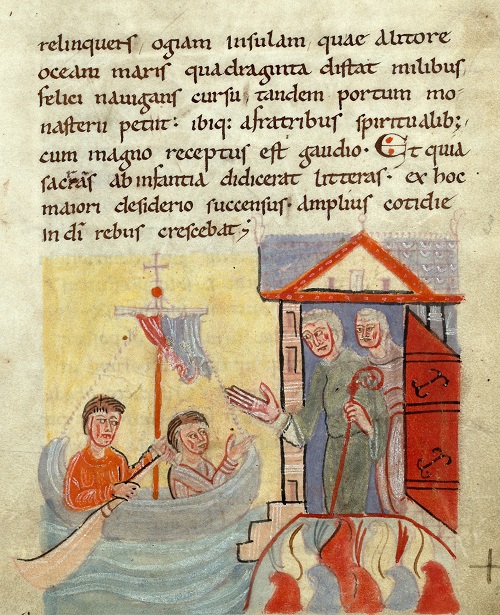 relinquens, ogiam insulam, quae a litore
oceani maris quadraginta distat milibus,
felici nauigans cursu, tandem portum mo-
nasterii petiit· ibiq: a fratribus spiritualib;
cum magno receptus est gaudio· Et quia
sacras ab infantia didicerat litteras· ex hoc
maiori desiderio succensus· amplius cotidie
in di rebus crescebat;